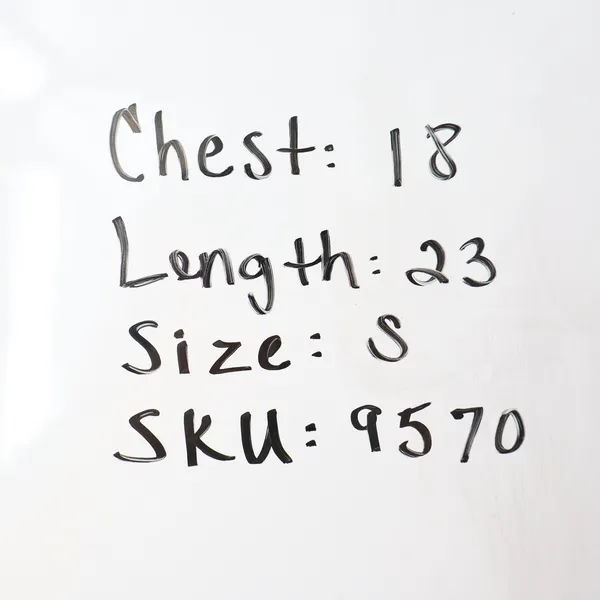 Chest: 18
Length: 23
Size: S
SKU: 9570